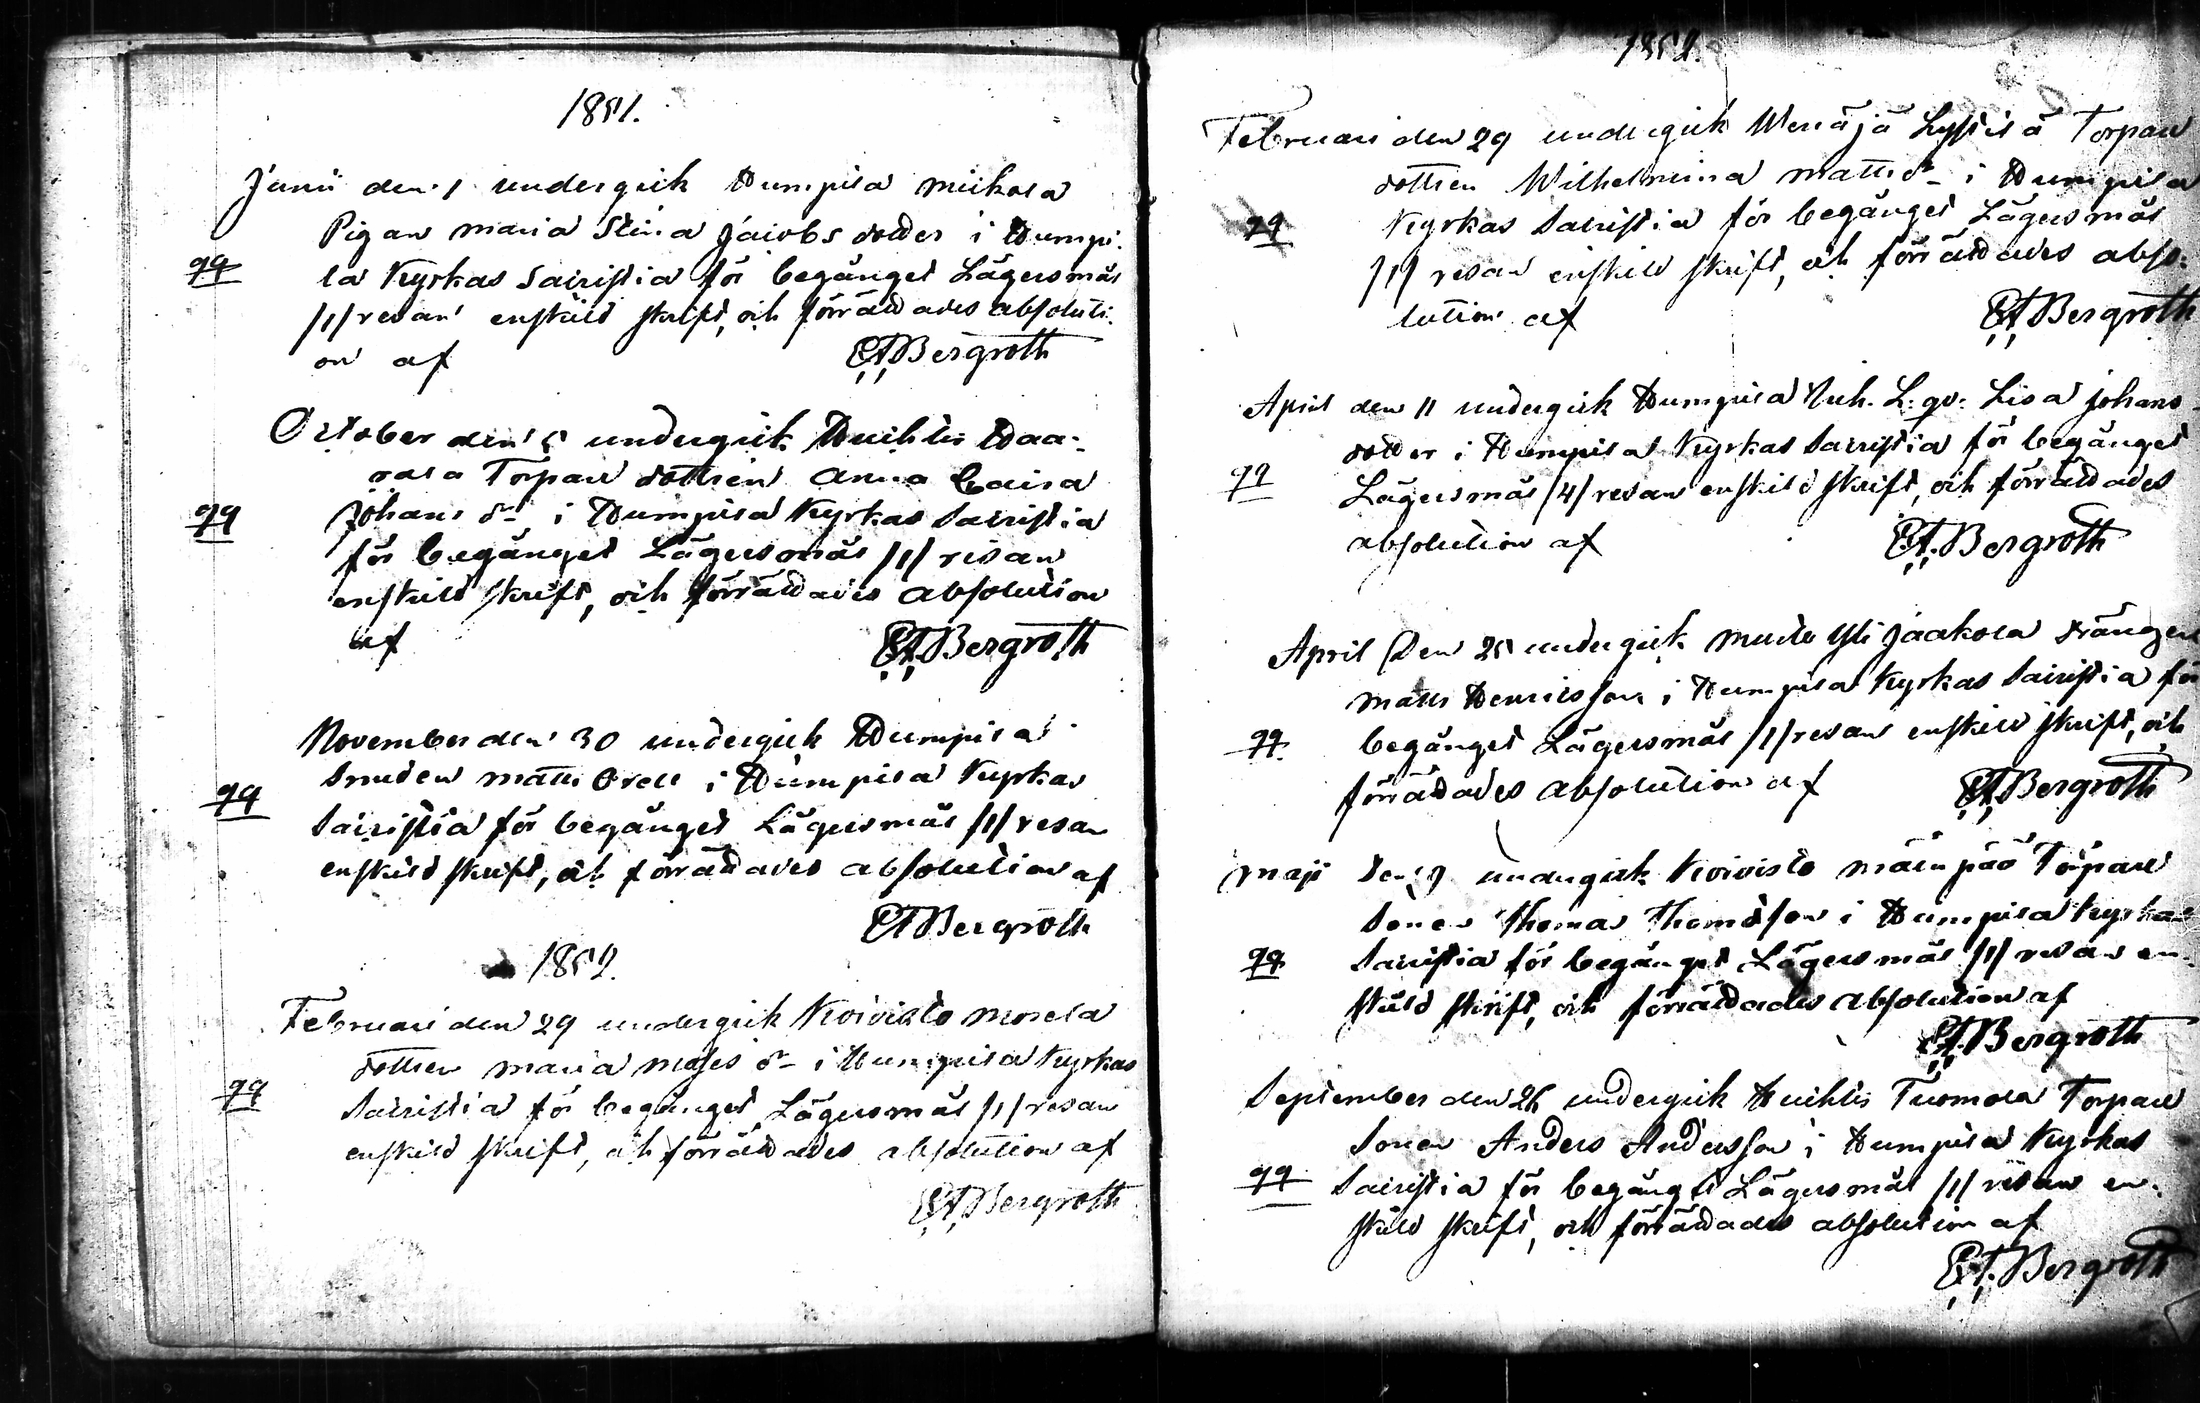 1851.
Junii den 1 undergick Humpila Mickola
Pigan Maria Stina Jacobsdotter i Humpi-
qq
la Kyrkas Sacristia för begånget Lägersmål
/1/ resan enskild skrift, och förräddades absoluti-
on af
E A Bergroth
October den 5 undergick Huihtis Waa-
Torpare dottren Anna Caisa
qq
Johans dr i Humpila Kyrkas Sacristia
för begånget Lägersmål /1/ resan
enskild skrift, och förräddades absolution
af
E A Bergroth
November den 30 undergick Humpila
Smeden Matts Orell i Humpila Kyrkas
qq
Sacristia för begånget Lägersmål /1/ resan
enskild skrift, och förräddades absolution af
E A Bergroth
1852.
Februari den 29 undergick Koivisto
dottren Maria Mojses dr i Humpila Kyrkas
qq
Sacristia för begånget Lägersmål /1/ resan
enskild skrift, och förräddades absolution af
E A Bergroth
1852.
Februari den 29 undergick Torpare
dottren Wilhelmina Matts dr i Humpila
qq
Kyrkas Sacristia för begånget Lägersmål
/1/ resan enskild skrift, och förräddades abso-
lution af
E A Bergroth
April den 11 undergick Humpila Inh. L. qv. Lisa Johans
dotter i Humpila Kyrkas Sacristia för begånget
qq
Lägersmål /4/ resan enskild skrift, och förräddades
absolution af
E A Bergroth
April Den 25 undergick Yli Jaakola drängen
Matts Henricsson i Humpila Kyrkas Sacristia för
qq
begånget Lägersmål /1/ resan enskild skrift, och
förräddades absolution af
E A Bergroth
Maji den 9 undergick Koivisto Mäenpää Torpare
Sonen Thomas Thomasson i Humpila Kyrkas
qq
Sacristia för begånget Lägersmål /1/ resan en-
skild skrift, och förräddades absolution af
E A Bergroth
September den 26 undergick Huihtis Tuomola Torpare
Sonen Anders Andersson i Humpila Kyrkas
qq
Sacristia för begånget Lägersmål /1/ resan en-
skild skrift, och förräddades absolution af
E A Bergroth